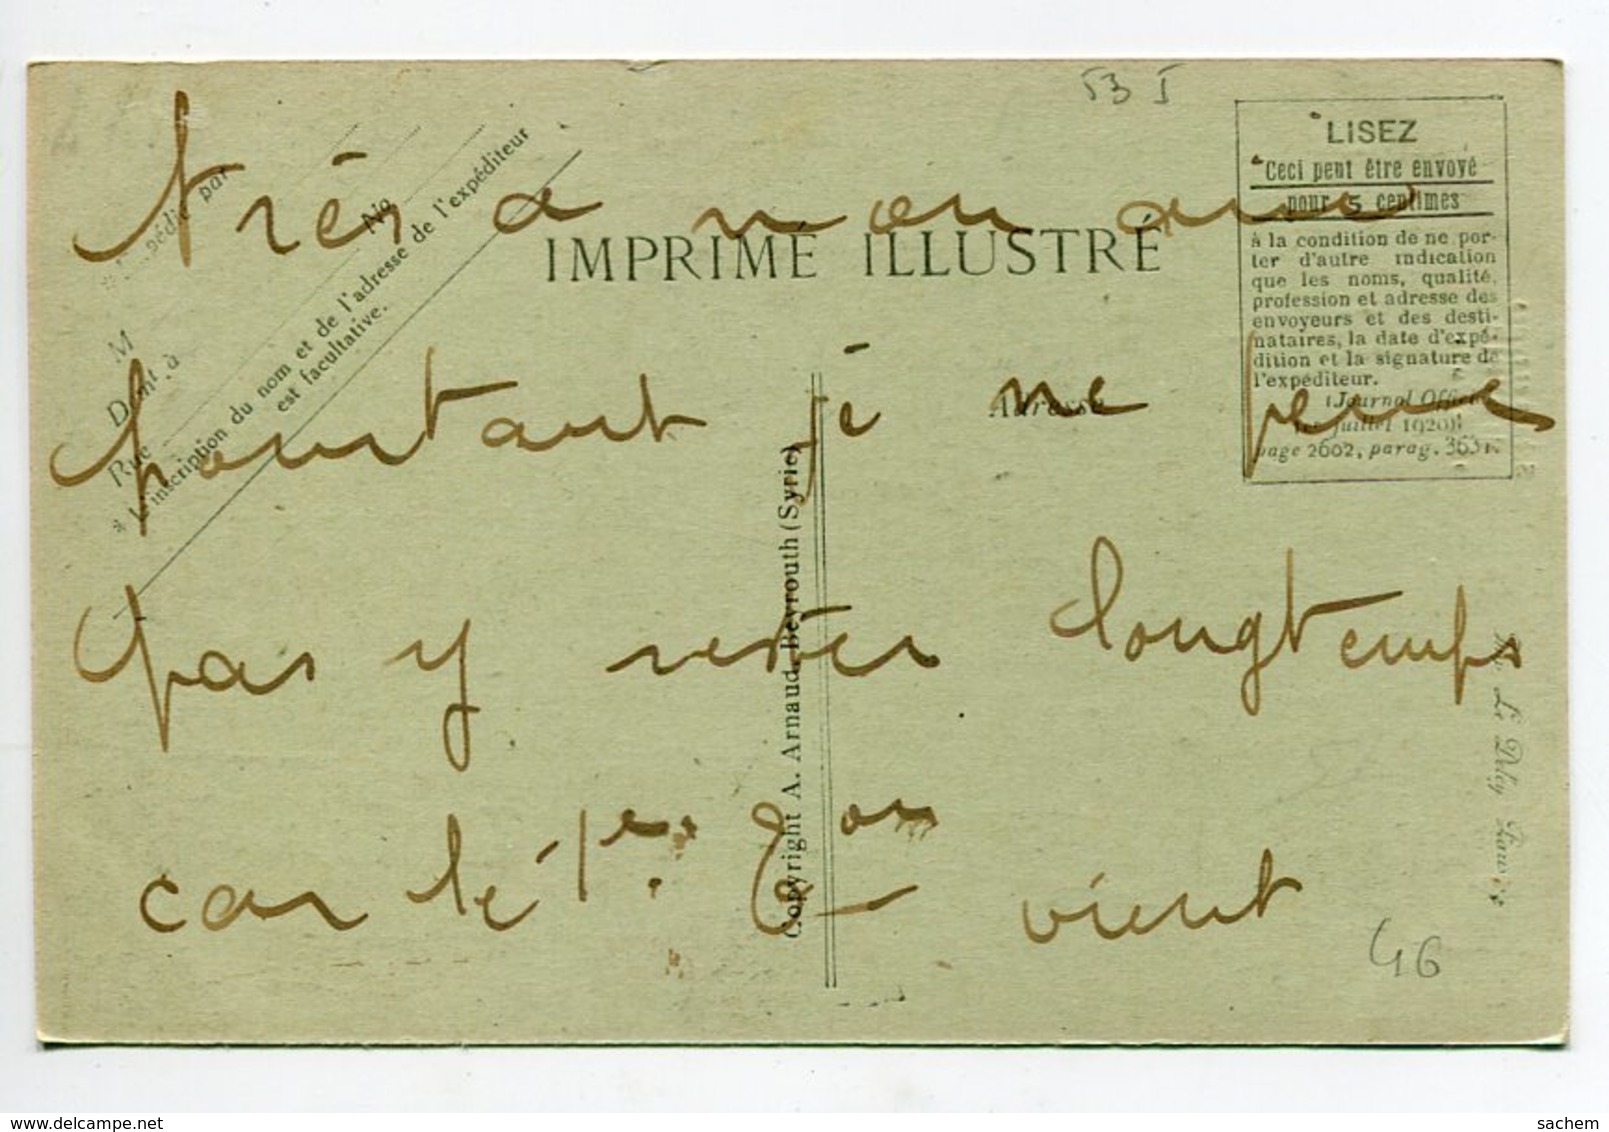 53 I
LISEZ
Ceci peut être envoyé
pour 5 centimes
à la condition de ne por-
ter d'autre indication
que les noms, qualité,
profession et adresse des
envoyeurs et des desti-
nataires, la date d'expé-
dition et la signature de
l'expéditeur.
(Journal Officiel
juillet 1920)
page 2602, parag. 3631.
*Expédié par
No
M
Dmt à
Rue
* L'inscription du nom et de l'adresse de l'expéditeur
est facultative.
IMPRIMÉ ILLUSTRÉ
Adresse
Copyright A. Arnaud, Beyrouth (Syrie)
Imp. Le Deley, Paris
très a mon aise
pourtant je ne peux
pas y rester longtemps
car le 1er Eon vient
46
sachem